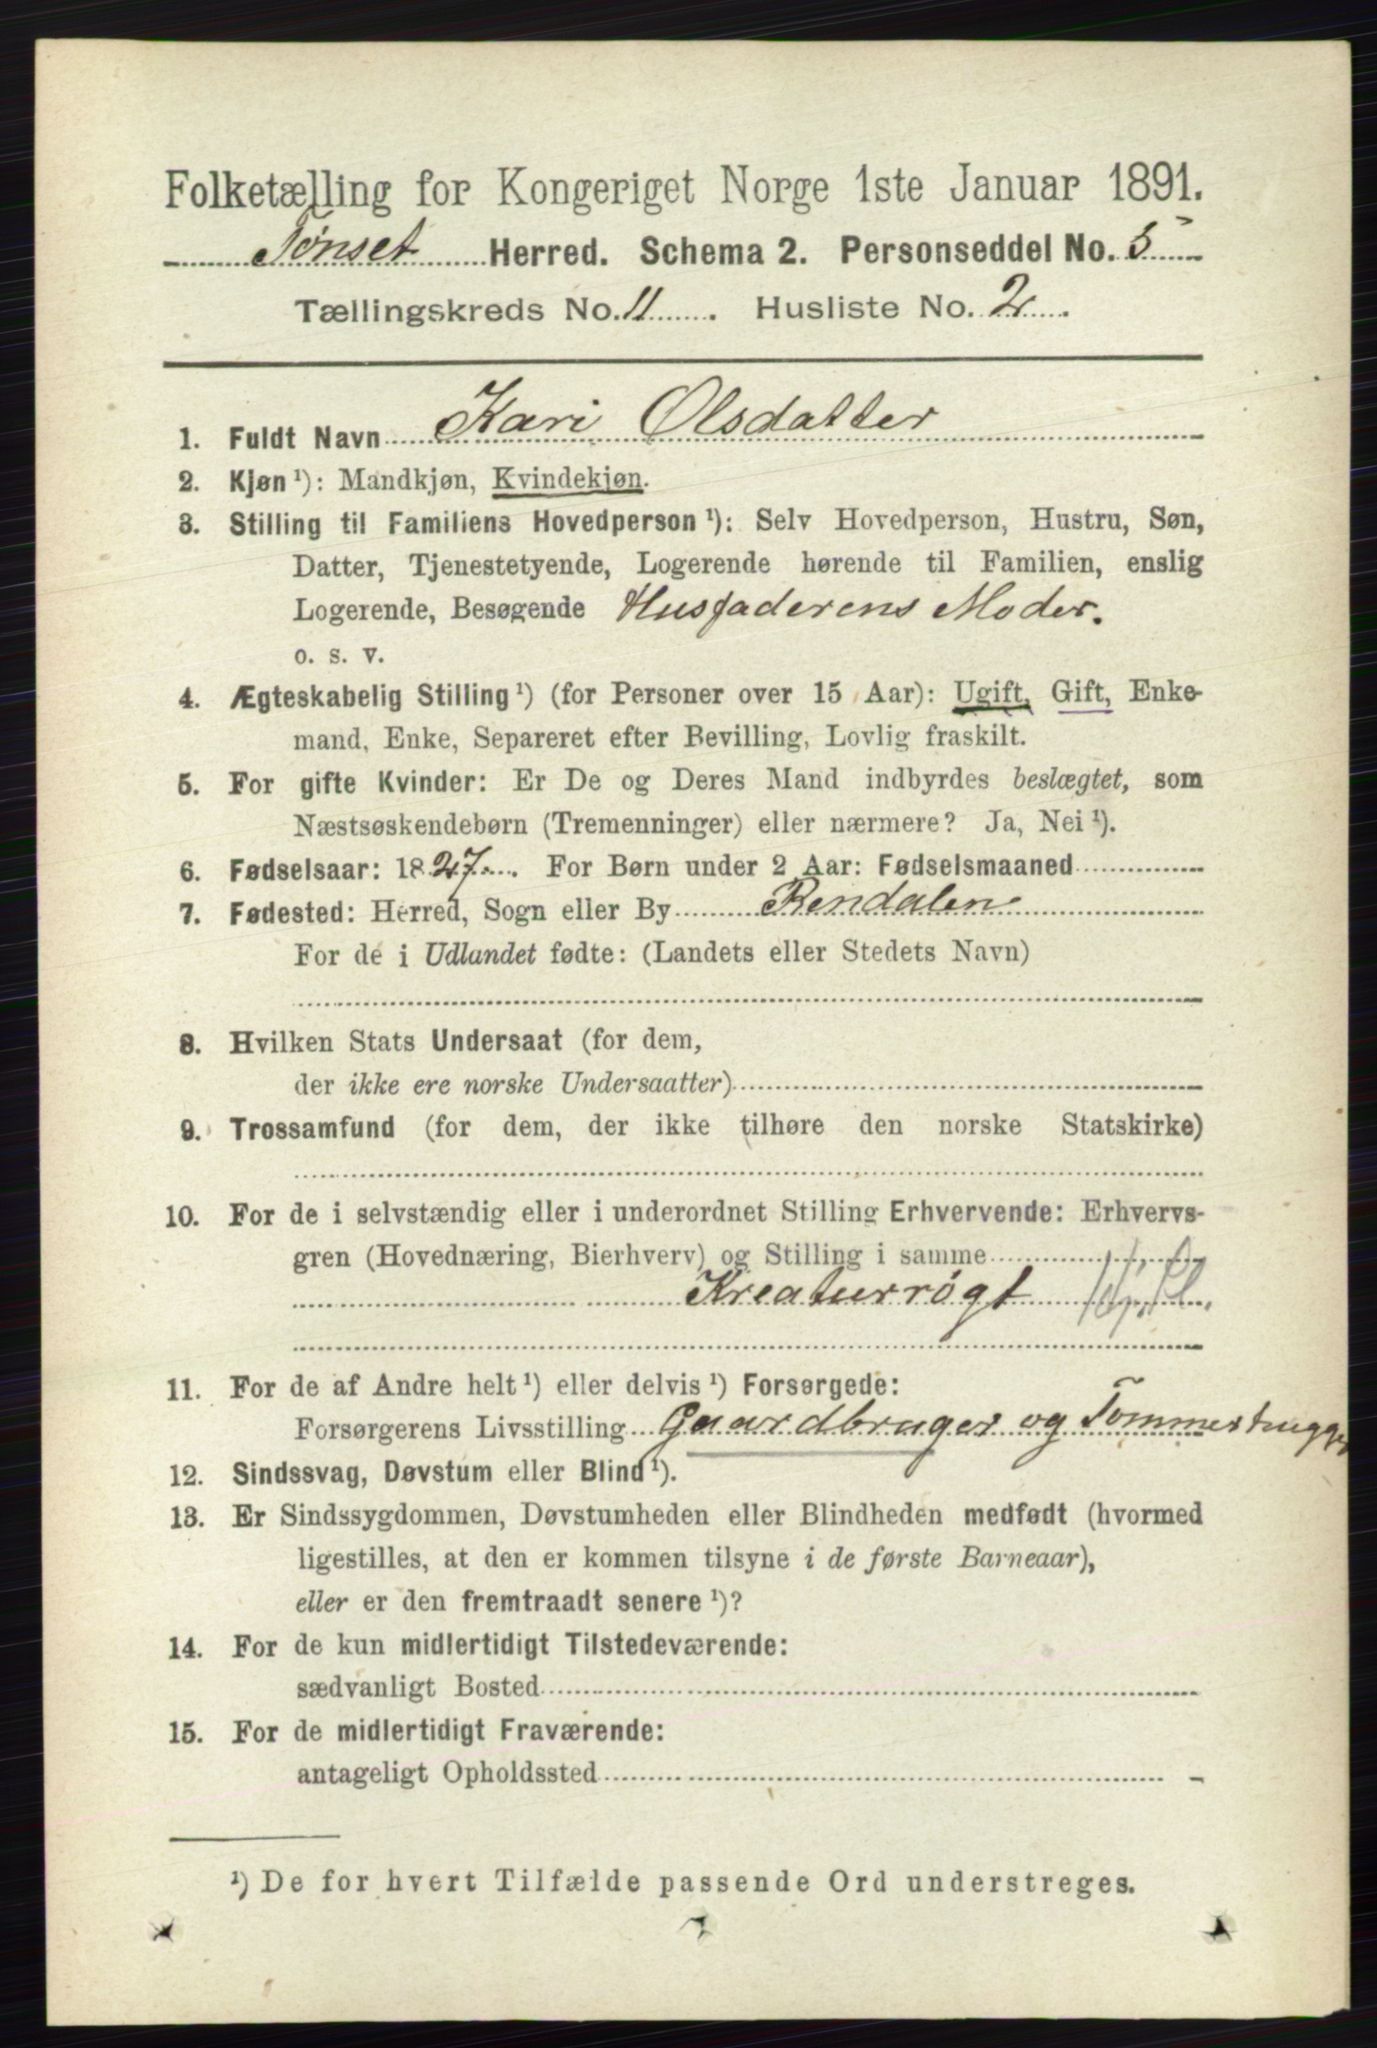 Folketælling for Kongeriget Norge 1ste Januar 1891.
Tønset Herred. Schema 2. Personseddel No. 5
Tællingskreds No. 11. Husliste No. 2.
1. Fuldt Navn Kari Olsdatter
2. Kjøn ¹): Mandkjøn, Kvindekjøn.
3. Stilling til Familiens Hovedperson ¹): Selv Hovedperson, Hustru, Søn,
Datter, Tjenestetyende, Logerende hørende til Familien, enslig
Logerende, Besøgende Husfaderens Moder.
o. s. v.
4. Ægteskabelig Stilling ¹) (for Personer over 15 Aar): Ugift, Gift, Enke-
mand, Enke, Separeret efter Bevilling, Lovlig fraskilt.
5. For gifte Kvinder: Er De og Deres Mand indbyrdes beslægtet, som
Næstsøskendebørn (Tremenninger) eller nærmere? Ja, Nei ¹).
6. Fødselsaar: 1827. For Børn under 2 Aar: Fødselsmaaned
7. Fødested: Herred, Sogn eller By Rendalen
For de i Udlandet fødte: (Landets eller Stedets Navn)
8. Hvilken Stats Undersaat (for dem,
der ikke ere norske Undersaatter)
9. Trossamfund (for dem, der ikke tilhøre den norske Statskirke)
10. For de i selvstændig eller i underordnet Stilling Erhvervende: Erhvervs-
gren (Hovednæring, Bierhverv) og Stilling i samme
Kreaturrøgt
11. For de af Andre helt ¹) eller delvis ¹) Forsørgede:
Forsørgerens Livsstilling Gaardbruger og Tømmerhugger
12. Sindssvag, Døvstum eller Blind ¹).
13. Er Sindssygdommen, Døvstumheden eller Blindheden medfødt (hvormed
ligestilles, at den er kommen tilsyne i de første Barneaar),
eller er den fremtraadt senere ¹)?
14. For de kun midlertidigt Tilstedeværende:
sædvanligt Bosted
15. For de midlertidigt Fraværende:
antageligt Opholdssted
¹) De for hvert Tilfælde passende Ord understreges.